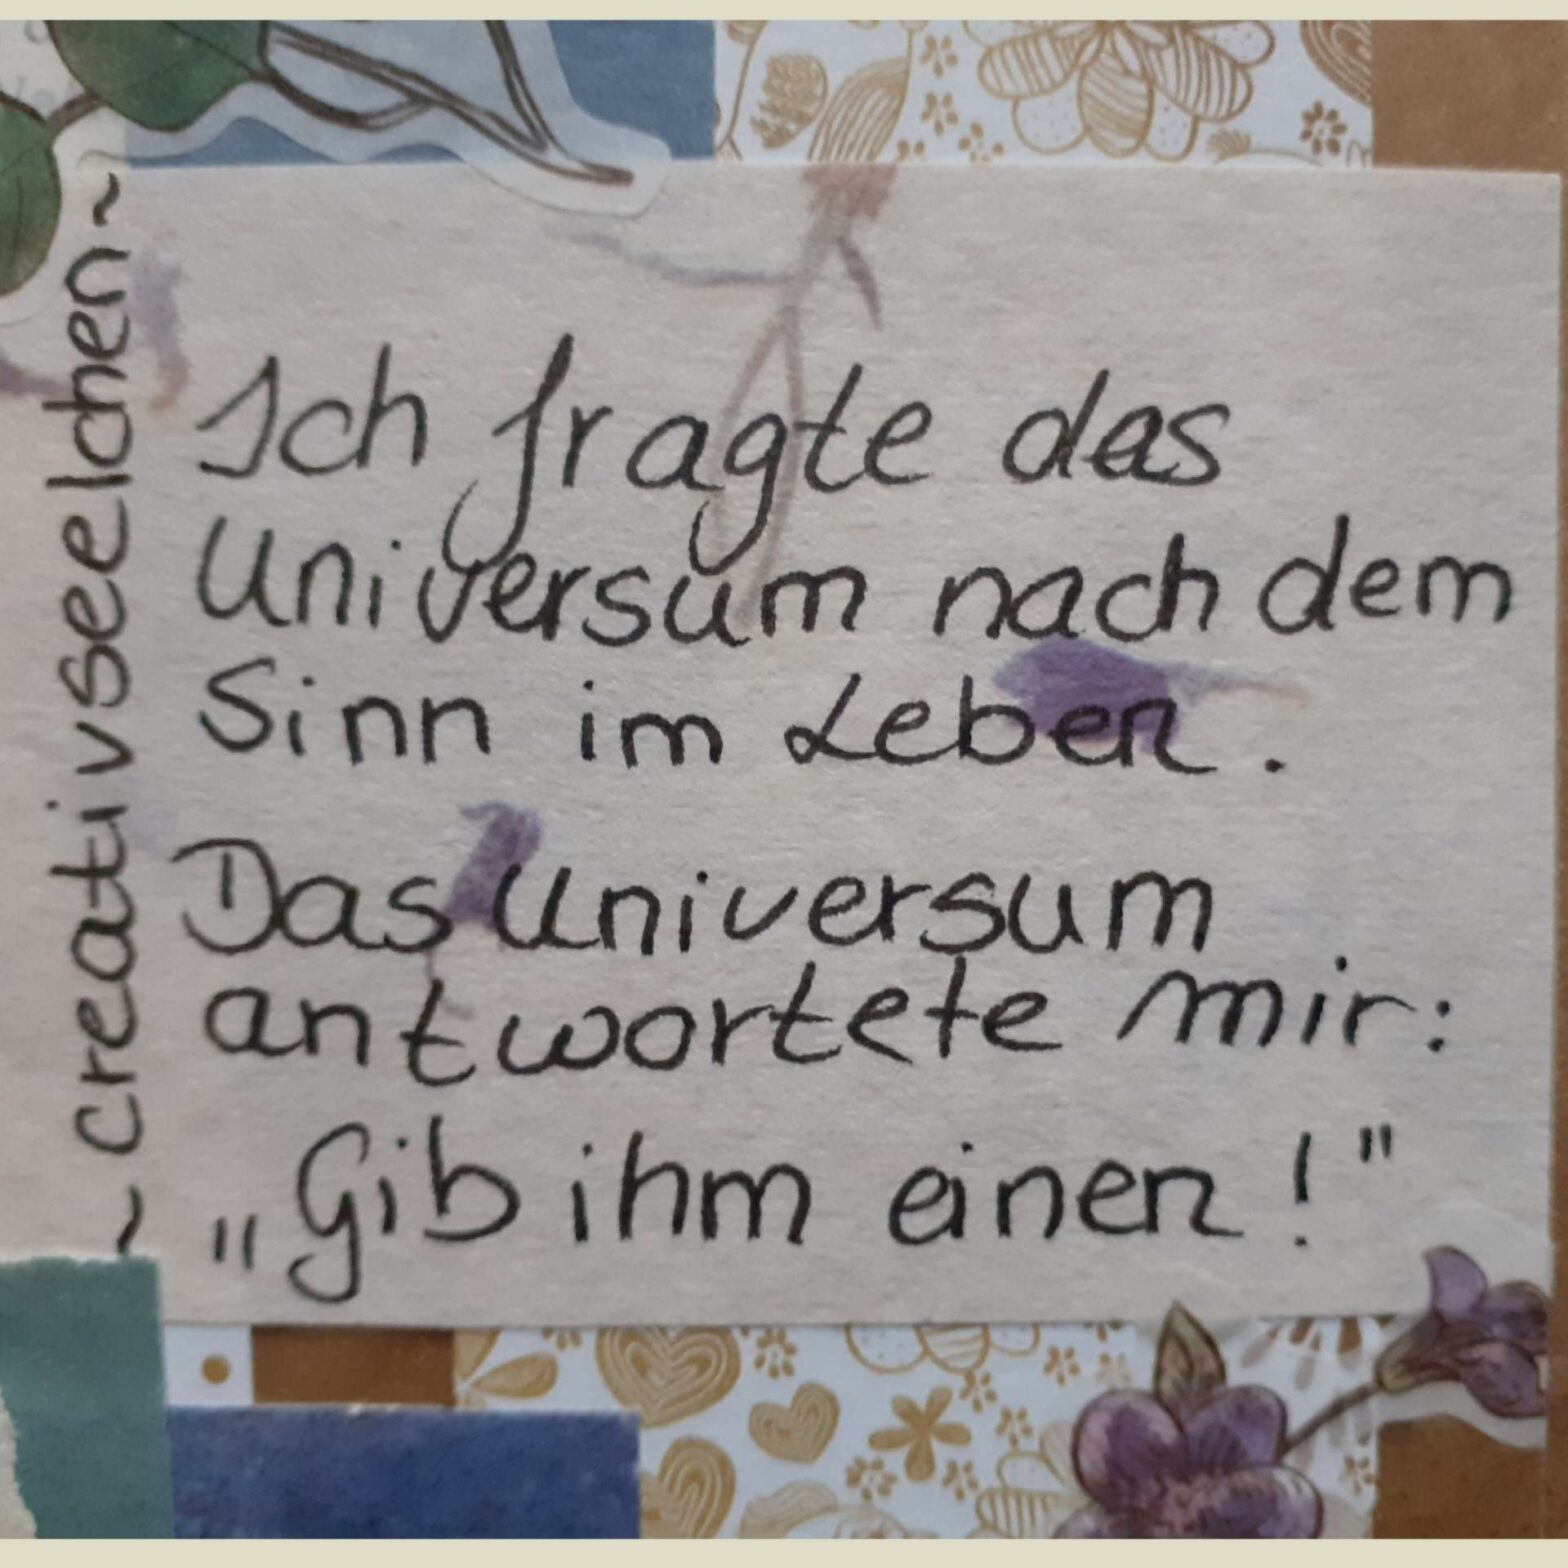 ~ creativseelchen ~
Ich fragte das
Universum nach dem
Sinn im Leben.
Das Universum
antwortete mir:
„Gib ihm einen!"